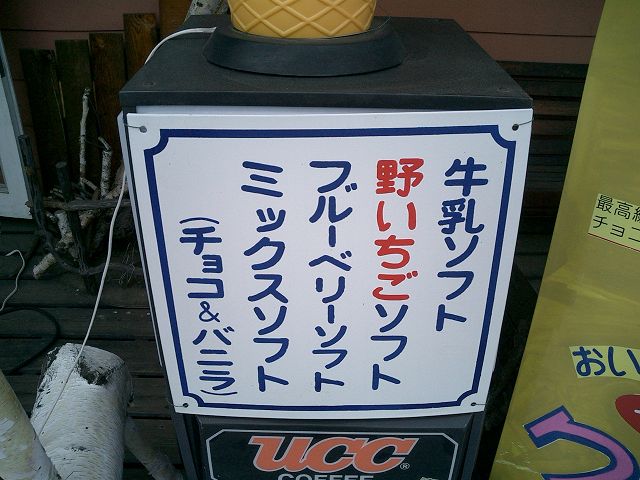 牛乳ソフト
野いちごソフト
ブルーベリーソフト
ミックスソフト
(チョコ&バニラ)
UCC®
COFFEE
最高級
チョコ
おい